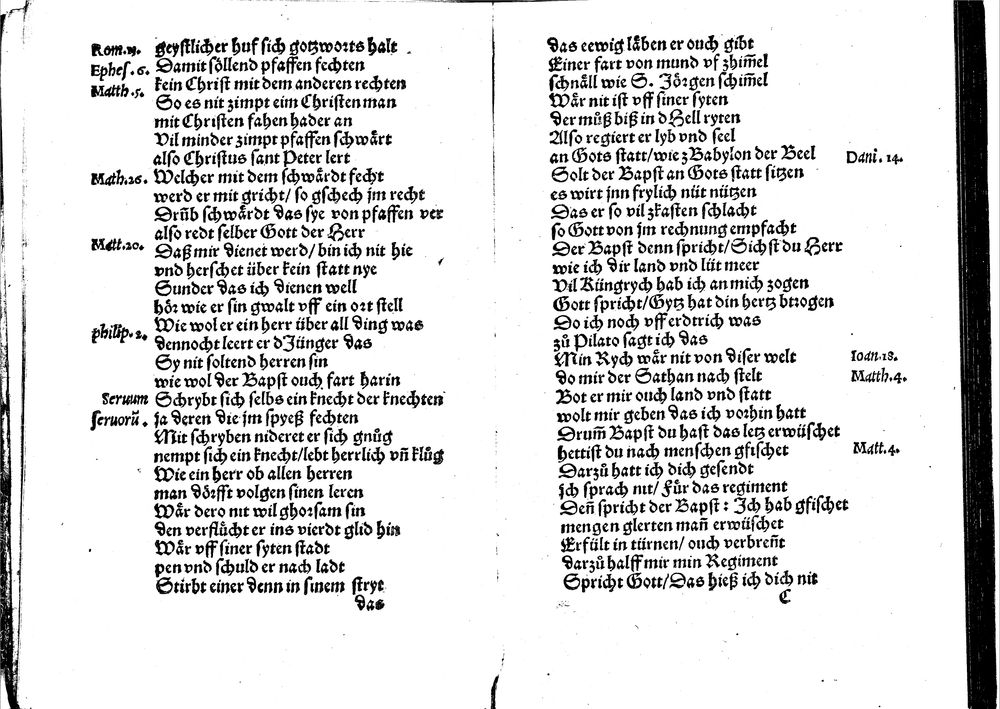 Rom. 13. geystlicher huf sich gotzworts halt
Ephes. 6. Damit söllend pfaffen fechten
Matth. 5. kein Christ mit dem anderen rechten
So es nit zimpt eim Christenman
mit Christen fahen hader an
Vil minder zimpt pfaffen schwärt
also Christus sant Peter lert
Math. 26. Welcher mit dem schwärdt fecht
werd er mit gricht/ so gschech jm recht
Drůb schwärdt das sye von pfaffen ver
also redt selber Gott der Herr
Matt. 20. Daß mir dienet werd/ bin ich nit hie
vnd herschet über kein statt nye
Sunder das ich dienen well
hör wie er sin gwalt vff ein ort stell
Wie wol er ein herr über all ding was
philip. 2. dennocht leert er dJünger das
Sy nit soltend herren sin
wie wol der Bapst ouch fart harin
Seruum Schrybt sich selbs ein knecht der knechten
seruorū. ja deren die jm spyeß fechten
Mit schryben nideret er sich gnůg
nempt sich ein knecht/lebt herrlich vn̄ klůg
Wie ein herr ob allen herren
man dörfft volgen sinen leren
Wär dero nit wil ghorsam sin
den verflůcht er ins vierdt glid hin
Wär vff siner syten stadt
pen vnd schuld er nach ladt
Stirbt einer denn in sinem stryt
das
das eewig läben er ouch gibt
Einer fart von mund vf zhim̄el
schnäll wie S. Jörgen schim̄el
Wär nit ist vff siner syten
der můß biß in d Hell ryten
Also regiert er lyb vnd seel
an Gots statt/wie z Babylon der Beel Dani. 14.
Solt der Bapst an Gots statt sitzen
es wirt jnn frylich nüt nützen
Das er so vil zkasten schlacht
so Gott von jm rechnung empfacht
Der Bapst denn spricht/Sichst du Herr
wie ich dir land vnd lüt meer
Vil Küngrych hab ich an mich zogen
Gott spricht/Gytz hat din hertz btrogen
Do ich noch vff erdtrich was
zů Pilato sagt ich das
Min Rych wär nit von diser welt Ioan. 18.
do mir der Sathan nach stelt Matth. 4.
Bot er mir ouch land vnd statt
wolt mir geben das ich vorhin hatt
Drum̄ Bapst du hast das letz erwüschet
hettist du nach menschen gfischet Matt. 4.
Darzů hatt ich dich gesendt
ich sprach nit/ Für das regiment
Den̄ spricht der Bapst: Ich hab gfischet
mengen glerten man̄ erwüschet
Erfült in türnen/ ouch verbren̄t
darzů halff mir min Regiment
Spricht Gott/Das hieß ich dich nit
C